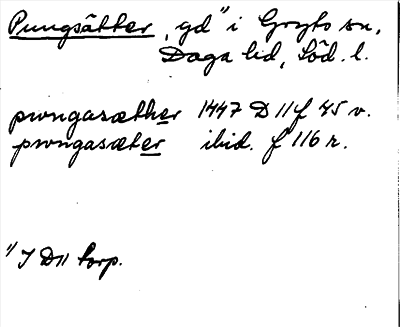 Pungsätter, gd 1) i Gryts sn,
Daga hd, Söd. l.
pwngasæther 1447 D 11 f 45 v.
pwngasæter ibid. f 116 r.
1) I D11 torp.